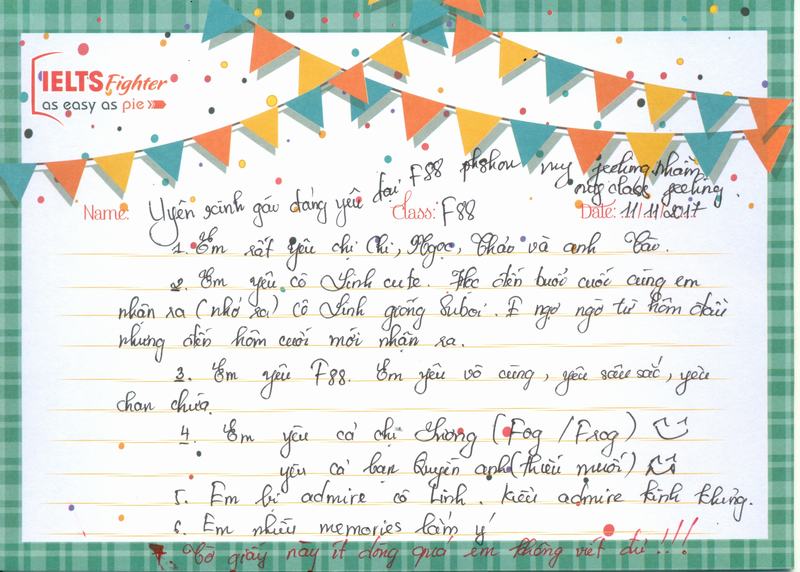 IELTS Fighter
as easy as pie
F88 my feeling. Nhầm
class feeling.
Name: Uyên xinh gái đáng yêu Class: F88 Date: 11/11/2017
1. Em rất yêu chị Chi, Ngọc, Thảo và anh
2. Em yêu cô Linh cute. Học đến buổi cuối cùng em
nhận ra (nhớ ra) cô Linh giống Suboi. E ngờ ngợ từ hôm đầu
nhưng đến hôm cuối mới nhận ra.
3. Em yêu F88. Em yêu vô cùng, yêu sâu sắc, yêu
chan chứa.
4. Em yêu cả chị Sương (Fog / Frog)
yêu cả bạn Quyền anh (thiếu muối)
5. Em bị admire cô Linh. Kiểu admire kinh khủng.
6. Em nhiều memories lắm ý
7. Tờ giấy này ít dòng quá em không viết đủ !!!